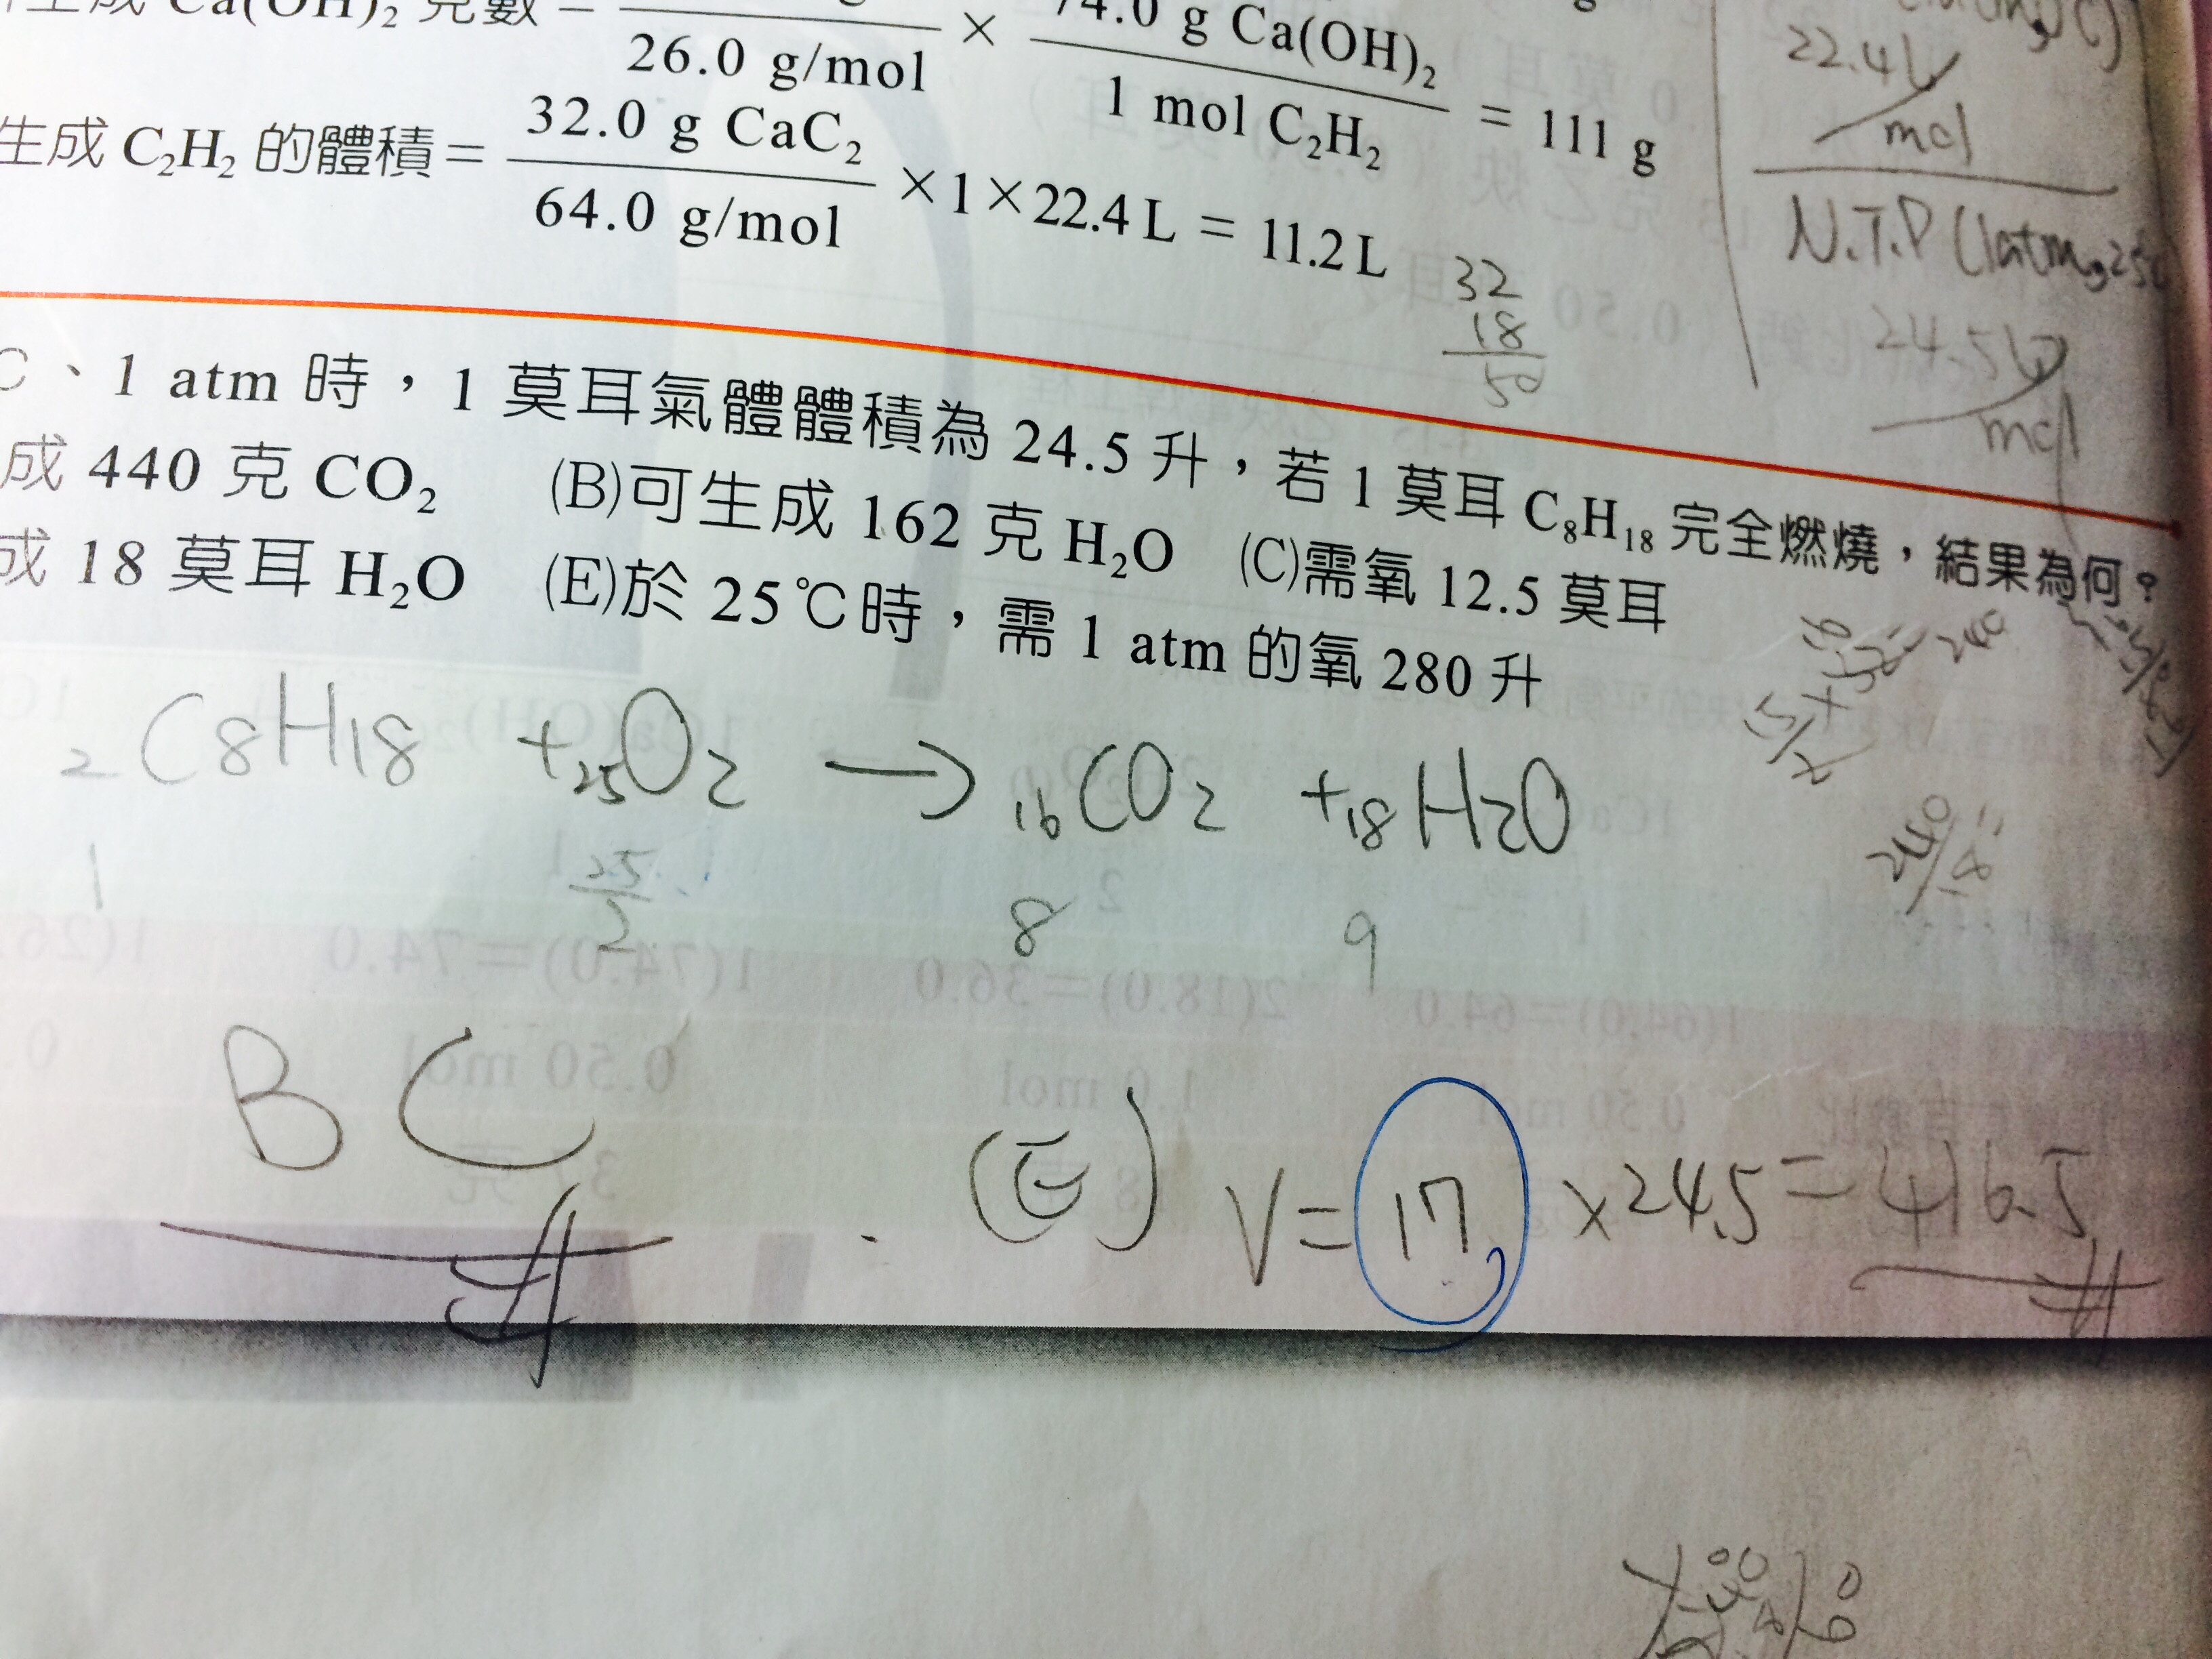 生成 Ca(OH)₂ 克數 = 26.0 g/mol × 74.0 g Ca(OH)₂ / 1 mol C₂H₂ = 111 g
生成 C₂H₂ 的體積 = 32.0 g CaC₂ / 64.0 g/mol × 1 × 22.4 L = 11.2 L
22.4L/mol
N.T.P (1atm,25
24.5L/mol
32
18
50
C、1 atm 時，1 莫耳氣體體積為 24.5 升，若 1 莫耳 C₈H₁₈ 完全燃燒，結果為何？
成 440 克 CO₂ (B)可生成 162 克 H₂O (C)需氧 12.5 莫耳
成 18 莫耳 H₂O (E)於 25℃時，需 1 atm 的氧 280 升
2C8H18 + 25O2 → 16CO2 + 18H2O
1 25/2 8 9
240/18=
BC
(E) V=17×24.5=416.5